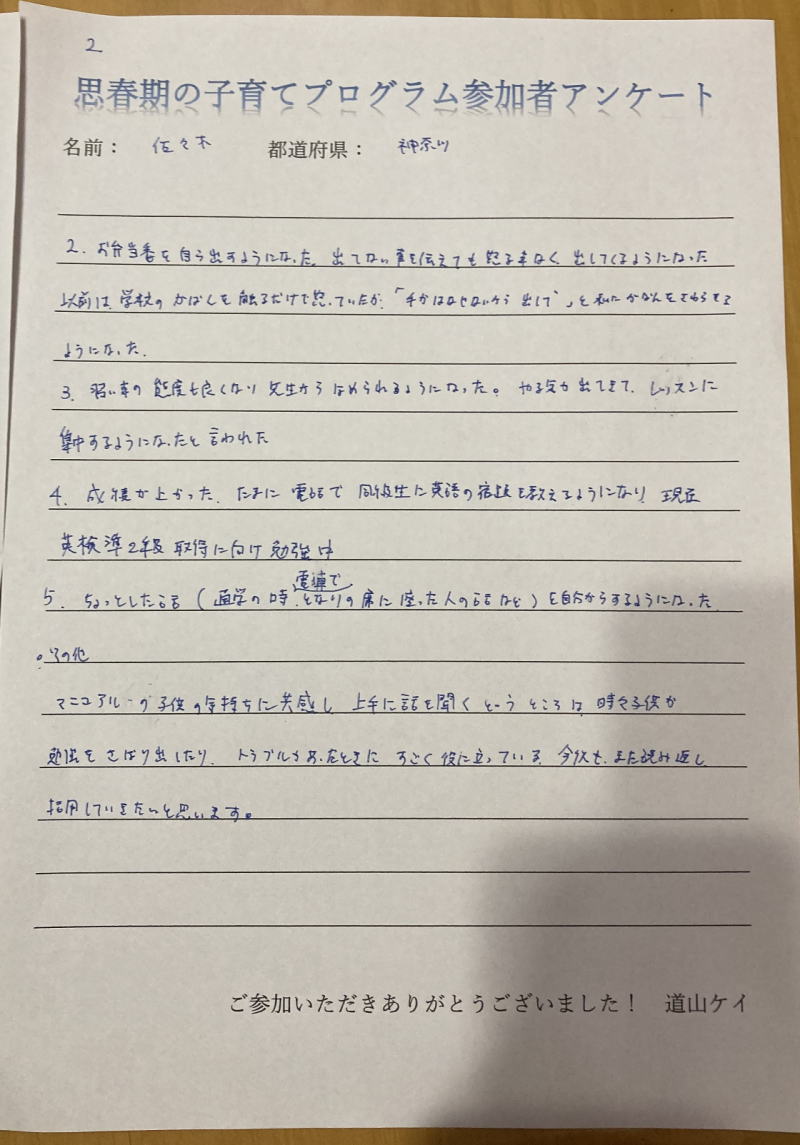 2
思春期の子育てプログラム参加者アンケート
名前： 佐々木 都道府県： 神奈川
2. お弁当箱を自ら出すようになった。出てない事を伝えても怒る事なく、出してくるようになった
以前は、学校のかばんを触るだけで怒っていたが、「手がはなせないから出して」と私にかばんをさわらせる
ようになった。
3. 習い事の態度も良くなり先生からほめられるようになった。やる気が出てきて、レッスンに
集中するようになったと言われた
4. 成績が上がった。たまに電話で同級生に英語の宿題を教えるようになり、現在
英検準2級取得に向け勉強中
5. ちょっとした話（通学の時、電車でとなりの席に座った人の話など）を自分からするようになった。
・その他
マニュアルの子供の気持ちに共感し、上手に話を聞くというところは、時々子供が
勉強をさぼり出したり、トラブルがあったときにすごく役に立っている。今後も、また読み返し
活用していきたいと思います。
ご参加いただきありがとうございました！ 道山ケイ